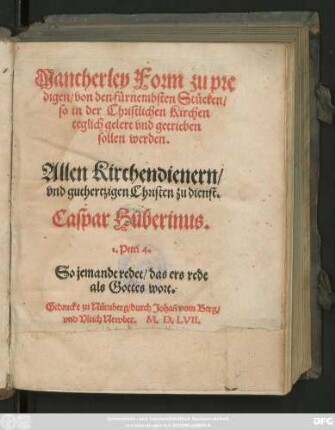 Mancherley Form zu pre
digen/ von den fürnembsten Stücken/
so in der Christlichen Kirchen
teglich gelert vnd getrieben
sollen werden.
Allen Kirchendienern/
vnd guthertzigen Christen zu dienst.
Caspar Huberinus.
1. Petri 4.
So jemandt redet/ das ers rede
als Gottes wort.
Gedruckt zu Nürnberg/ durch Johañ vom Berg/
vnd Vlrich Newber. M. D. LVII.